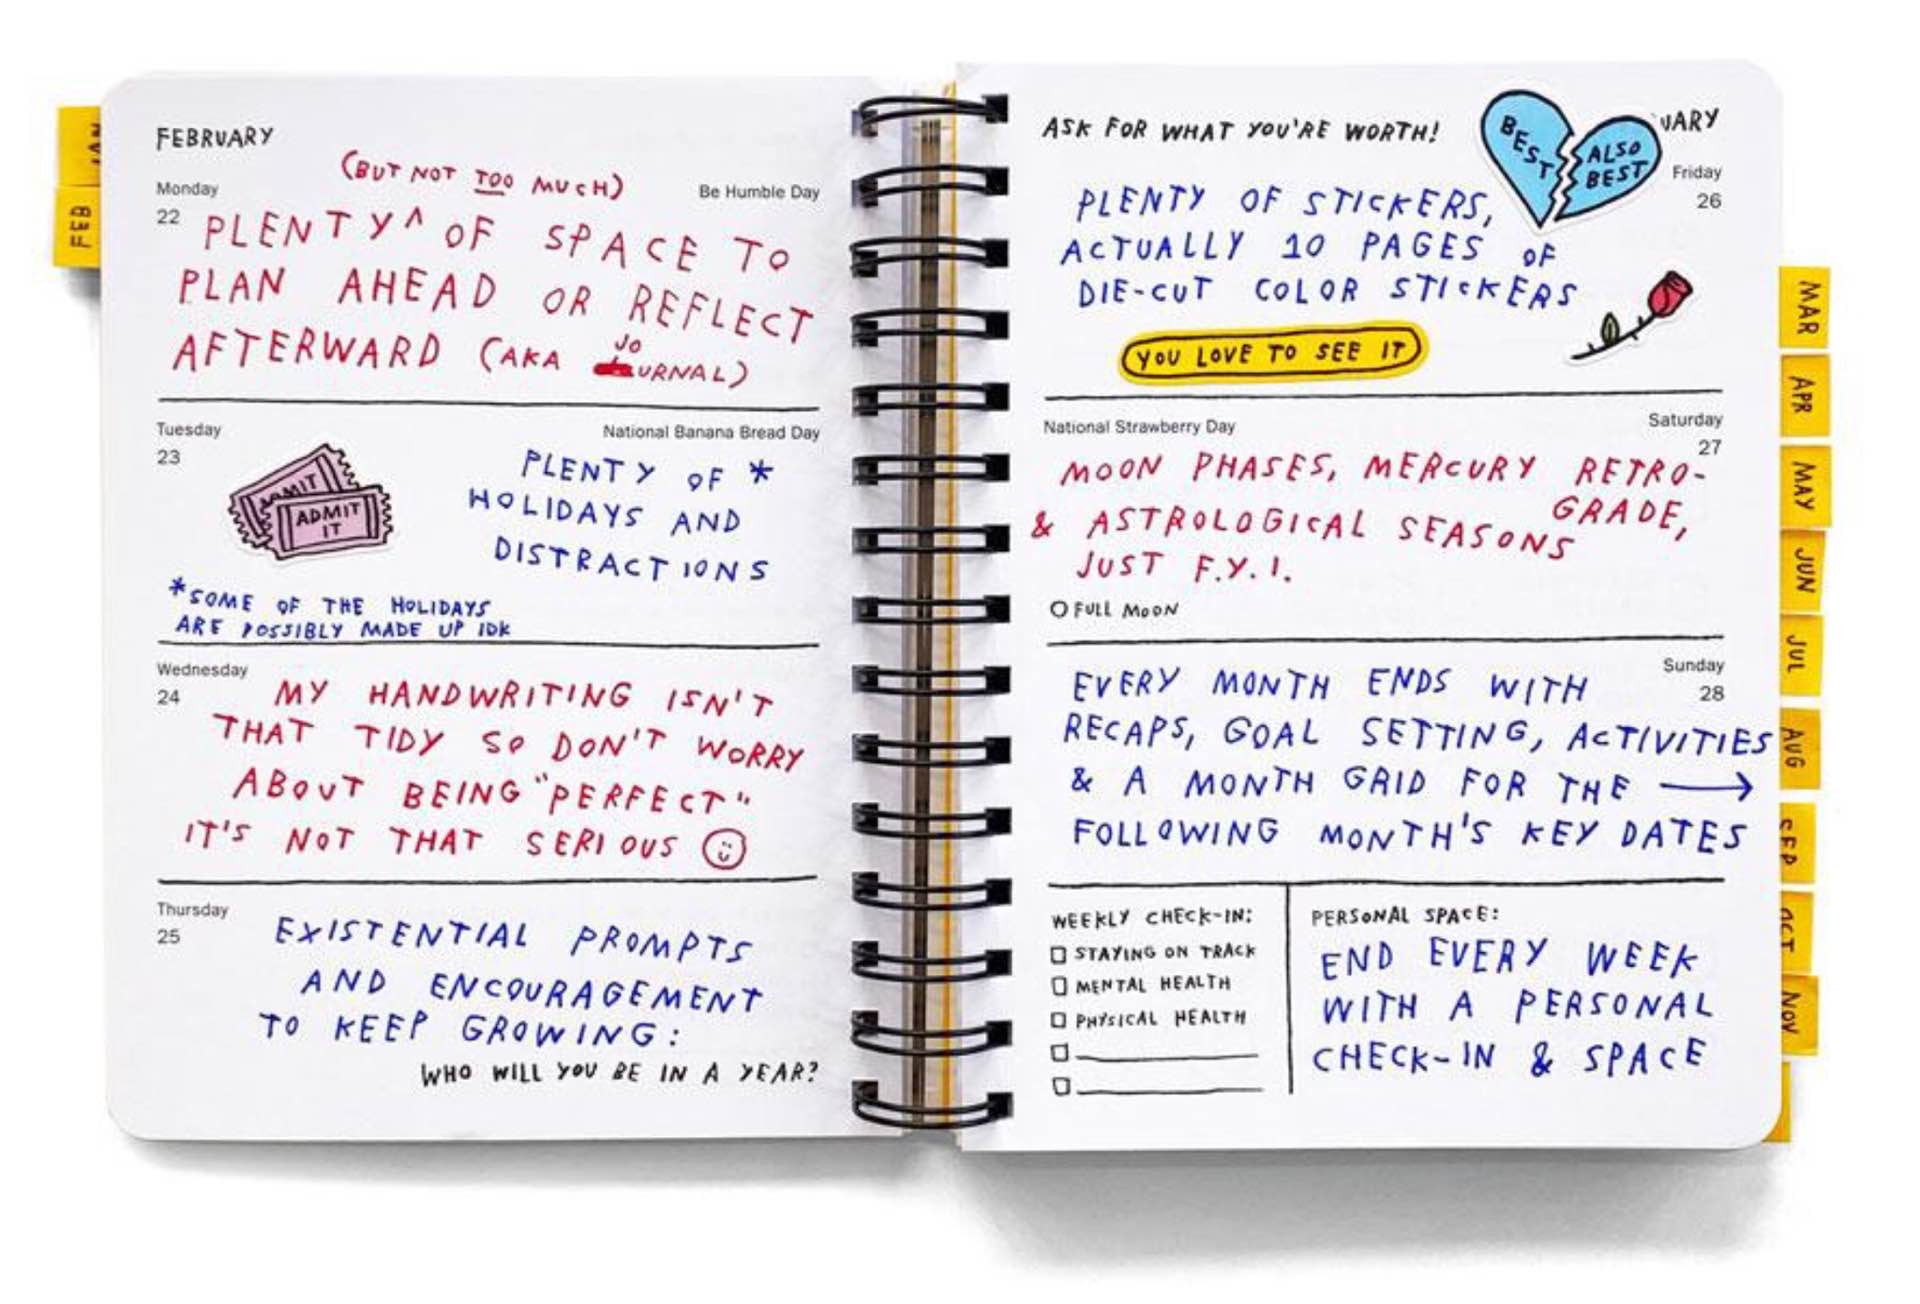 JAN
FEB
FEBRUARY
Monday
22
(BUT NOT TOO MUCH)
Be Humble Day
PLENTY ^ OF SPACE TO
PLAN AHEAD OR REFLECT
AFTERWARD (AKA JOURNAL)
Tuesday
23
National Banana Bread Day
ADMIT
ADMIT
IT
PLENTY OF *
HOLIDAYS AND
DISTRACTIONS
*SOME OF THE HOLIDAYS
ARE POSSIBLY MADE UP IDK
Wednesday
24
MY HANDWRITING ISN'T
THAT TIDY SO DON'T WORRY
ABOUT BEING "PERFECT"
IT'S NOT THAT SERIOUS
Thursday
25
EXISTENTIAL PROMPTS
AND ENCOURAGEMENT
TO KEEP GROWING:
WHO WILL YOU BE IN A YEAR?
ASK FOR WHAT YOU'RE WORTH!
BEST
ALSO
BEST
UARY
Friday
26
PLENTY OF STICKERS,
ACTUALLY 10 PAGES OF
DIE-CUT COLOR STICKERS
YOU LOVE TO SEE IT
National Strawberry Day
Saturday
27
MOON PHASES, MERCURY RETRO-
GRADE,
& ASTROLOGICAL SEASONS
JUST F.Y.I.
O FULL MOON
Sunday
28
EVERY MONTH ENDS WITH
RECAPS, GOAL SETTING, ACTIVITIES
& A MONTH GRID FOR THE →
FOLLOWING MONTH'S KEY DATES
WEEKLY CHECK-IN:
☐ STAYING ON TRACK
☐ MENTAL HEALTH
☐ PHYSICAL HEALTH
PERSONAL SPACE:
END EVERY WEEK
WITH A PERSONAL
CHECK-IN & SPACE
MAR
APR
MAY
JUN
JUL
AUG
SEP
OCT
NOV